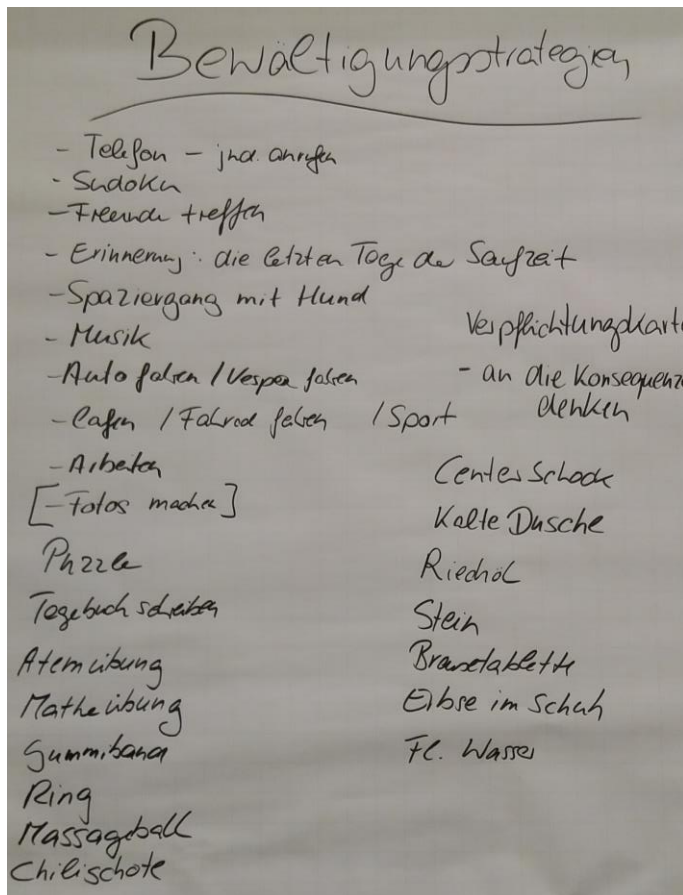 Bewältigungsstrategien
- Telefon - jnd. anrufen
- Sudoku
- Freunde treffen
- Erinnerung: die letzten Tage der Saufzeit
- Spaziergang mit Hund
- Musik
- Auto fahren / Vespa fahren
- Laufen / Fahrrad fahren / Sport
- Arbeiten
[- Fotos machen]
Puzzle
Tagebuch schreiben
Atemübung
Matheübung
Gummiband
Ring
Massageball
Chilischote
Verpflichtungskarte
- an die Konsequenzen
denken
Center Schock
Kalte Dusche
Riechöl
Stein
Brausetablette
Erbse im Schuh
Fl. Wasser